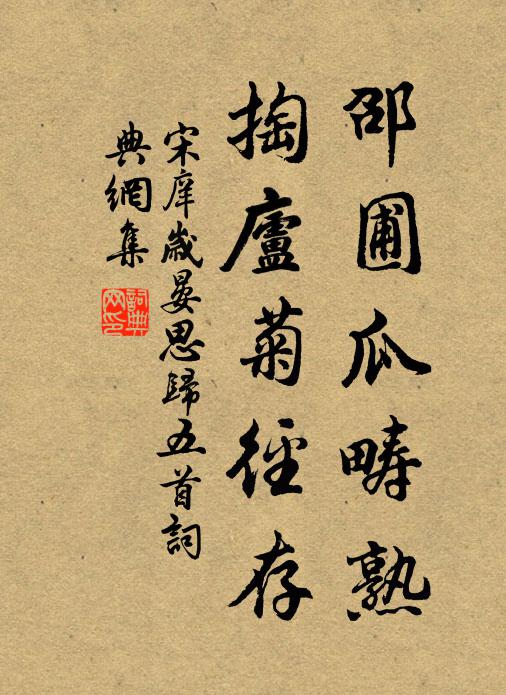 邵圃瓜疇熟
掏廬菊徑存
宋庠歲晏思歸五首詞
典網集
詞典網印